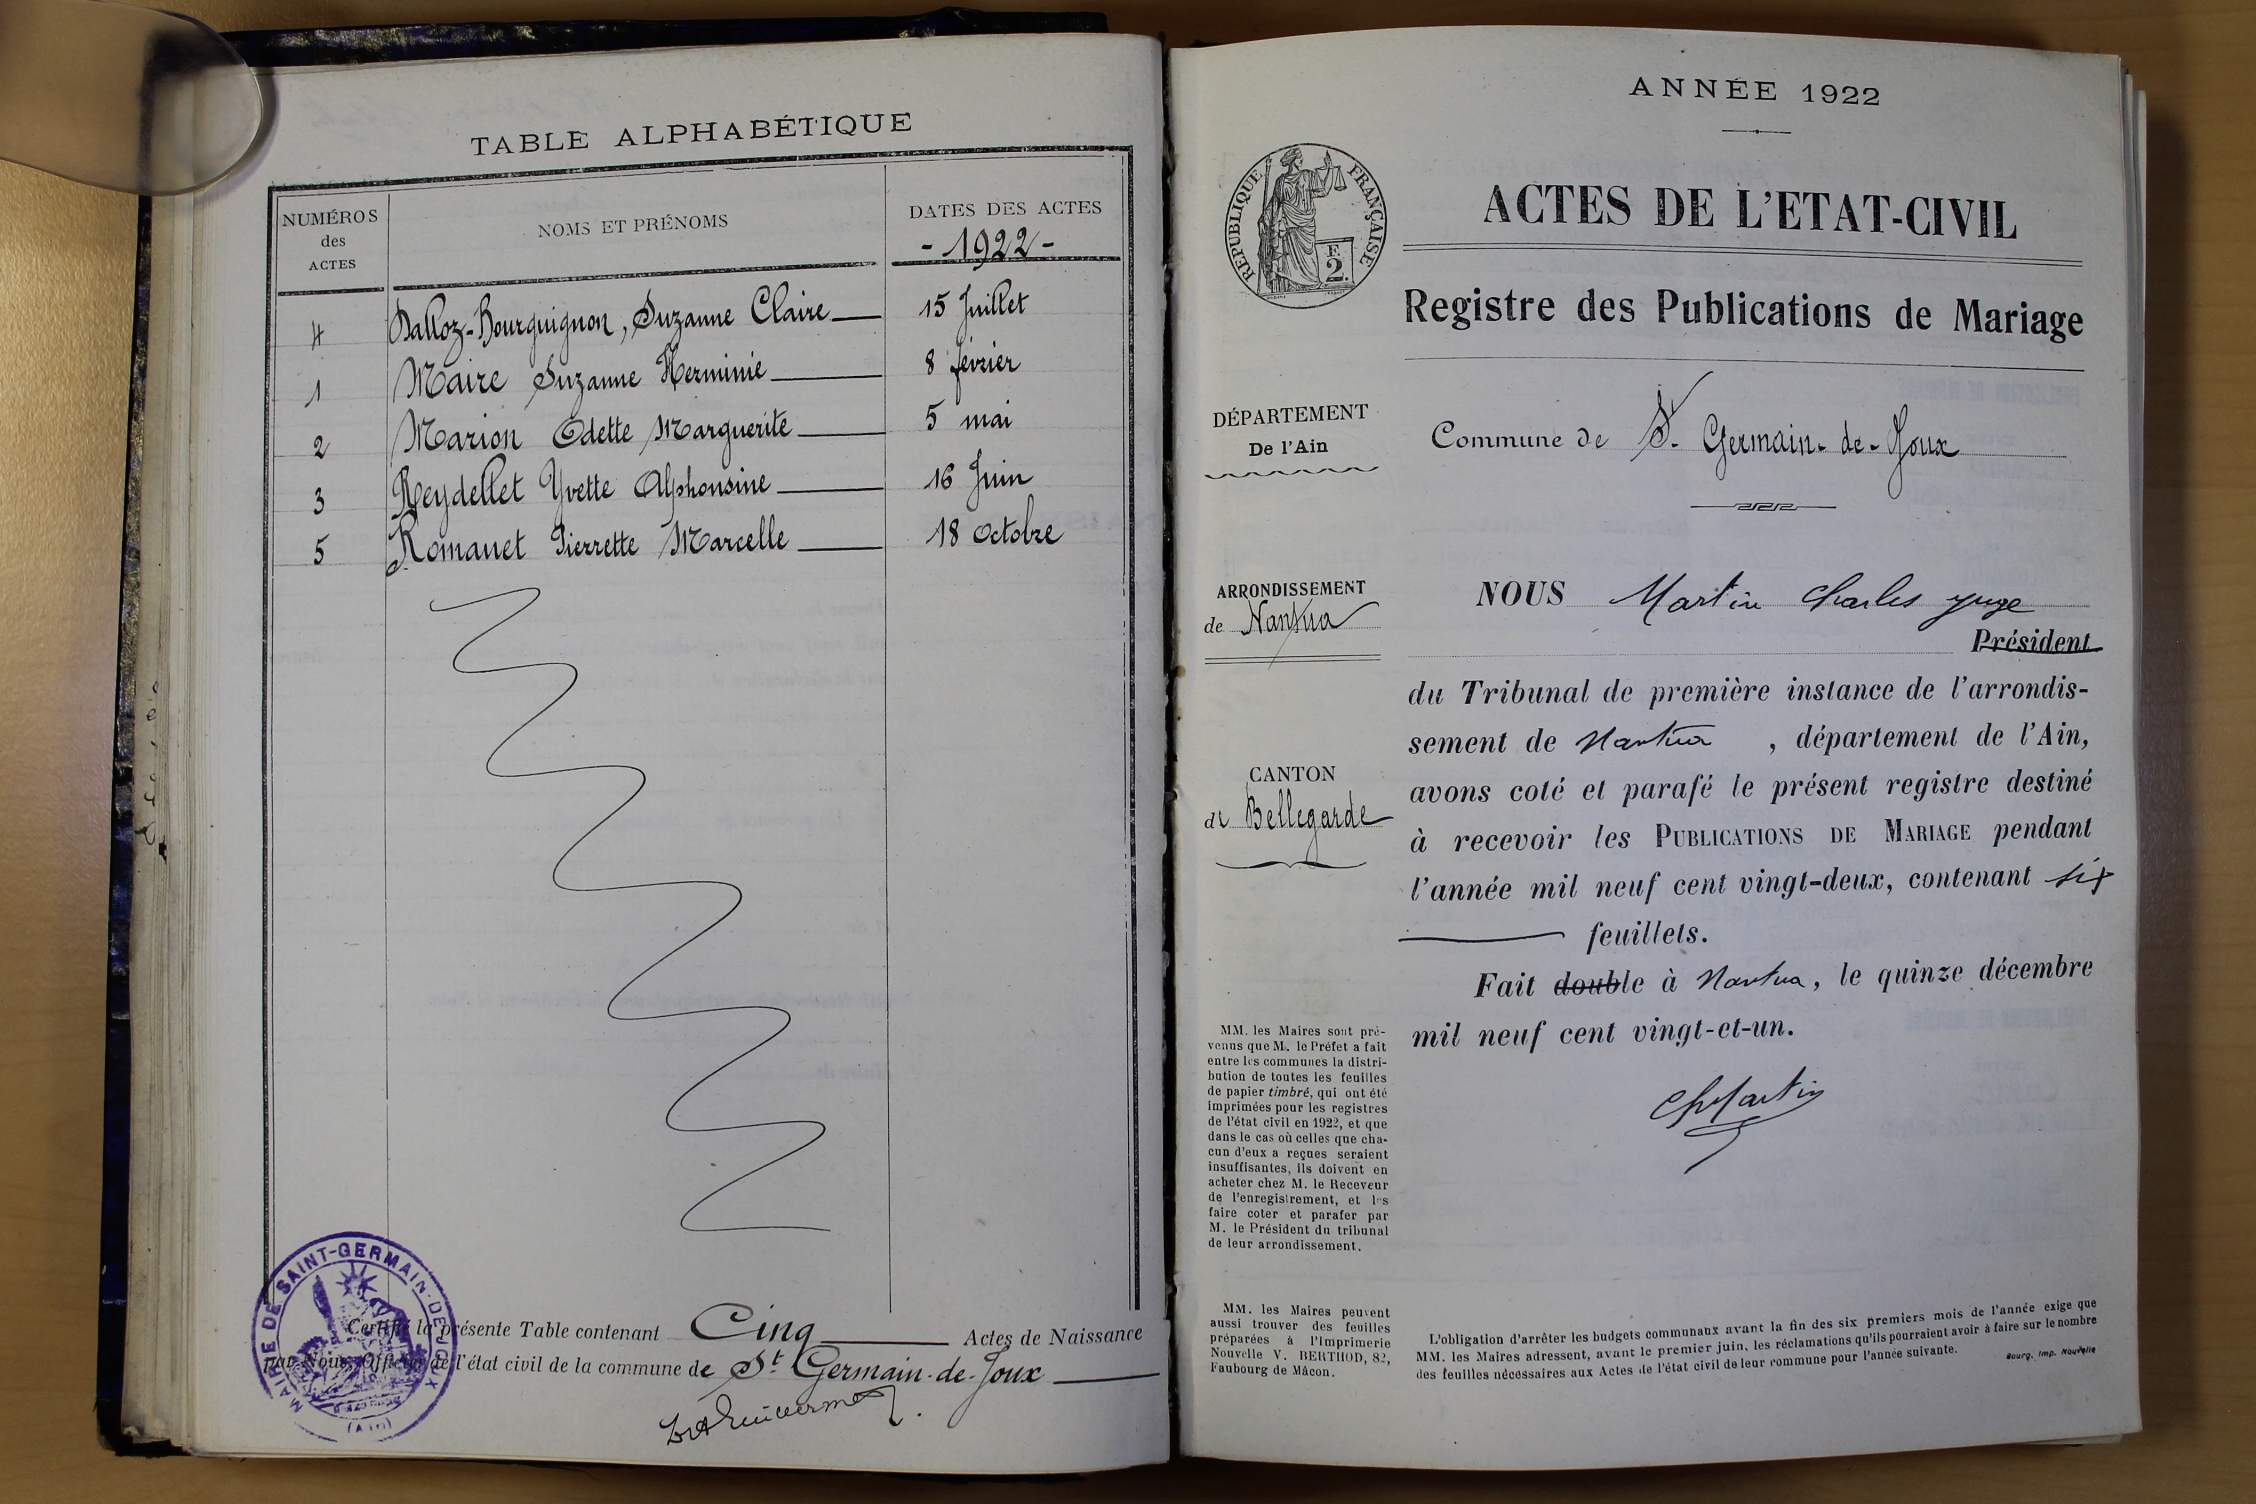 TABLE ALPHABÉTIQUE
NUMÉROS
des
ACTES
NOMS ET PRÉNOMS
DATES DES ACTES
- 1922 -
4 Dalloz-Bourguignon, Suzanne Claire 15 Juillet
1 Maire Suzanne Herminie 8 février
2 Marion Odette Marguerite 5 mai
3 Reydellet Yvette Alphonsine 16 Juin
5 Romanet Pierrette Marcelle 18 Octobre
Certifié la présente Table contenant Cinq Actes de Naissance
par Nous, Officier de l'état civil de la commune de St Germain-de-Joux
MAIRIE DE SAINT-GERMAIN-DE-JOUX
(AIN)
ANNÉE 1922
RÉPUBLIQUE FRANÇAISE
F.
2.
ACTES DE L'ETAT-CIVIL
Registre des Publications de Mariage
DÉPARTEMENT
De l'Ain
Commune de St Germain-de-Joux
ARRONDISSEMENT
de Nantua
CANTON
de Bellegarde
NOUS Martin Charles juge
Président
du Tribunal de première instance de l'arrondis-
sement de Nantua, département de l'Ain,
avons coté et parafé le présent registre destiné
à recevoir les PUBLICATIONS DE MARIAGE pendant
l'année mil neuf cent vingt-deux, contenant six
feuillets.
Fait double à Nantua, le quinze décembre
mil neuf cent vingt-et-un.
ChMartin
MM. les Maires sont pré-
venus que M. le Préfet a fait
entre les communes la distri-
bution de toutes les feuilles
de papier timbré, qui ont été
imprimées pour les registres
de l'état civil en 1922, et que
dans le cas où celles que cha-
cun d'eux a reçues seraient
insuffisantes, ils doivent en
acheter chez M. le Receveur
de l'enregistrement, et les
faire coter et parafer par
M. le Président du tribunal
de leur arrondissement.
MM. les Maires peuvent
aussi trouver des feuilles
préparées à l'Imprimerie
Nouvelle V. BERTHOD, 82,
Faubourg de Mâcon.
L'obligation d'arrêter les budgets communaux avant la fin des six premiers mois de l'année exige que
MM. les Maires adressent, avant le premier juin, les réclamations qu'ils pourraient avoir à faire sur le nombre
des feuilles nécessaires aux Actes de l'état civil de leur commune pour l'année suivante.
Bourg, Imp. Nouvelle